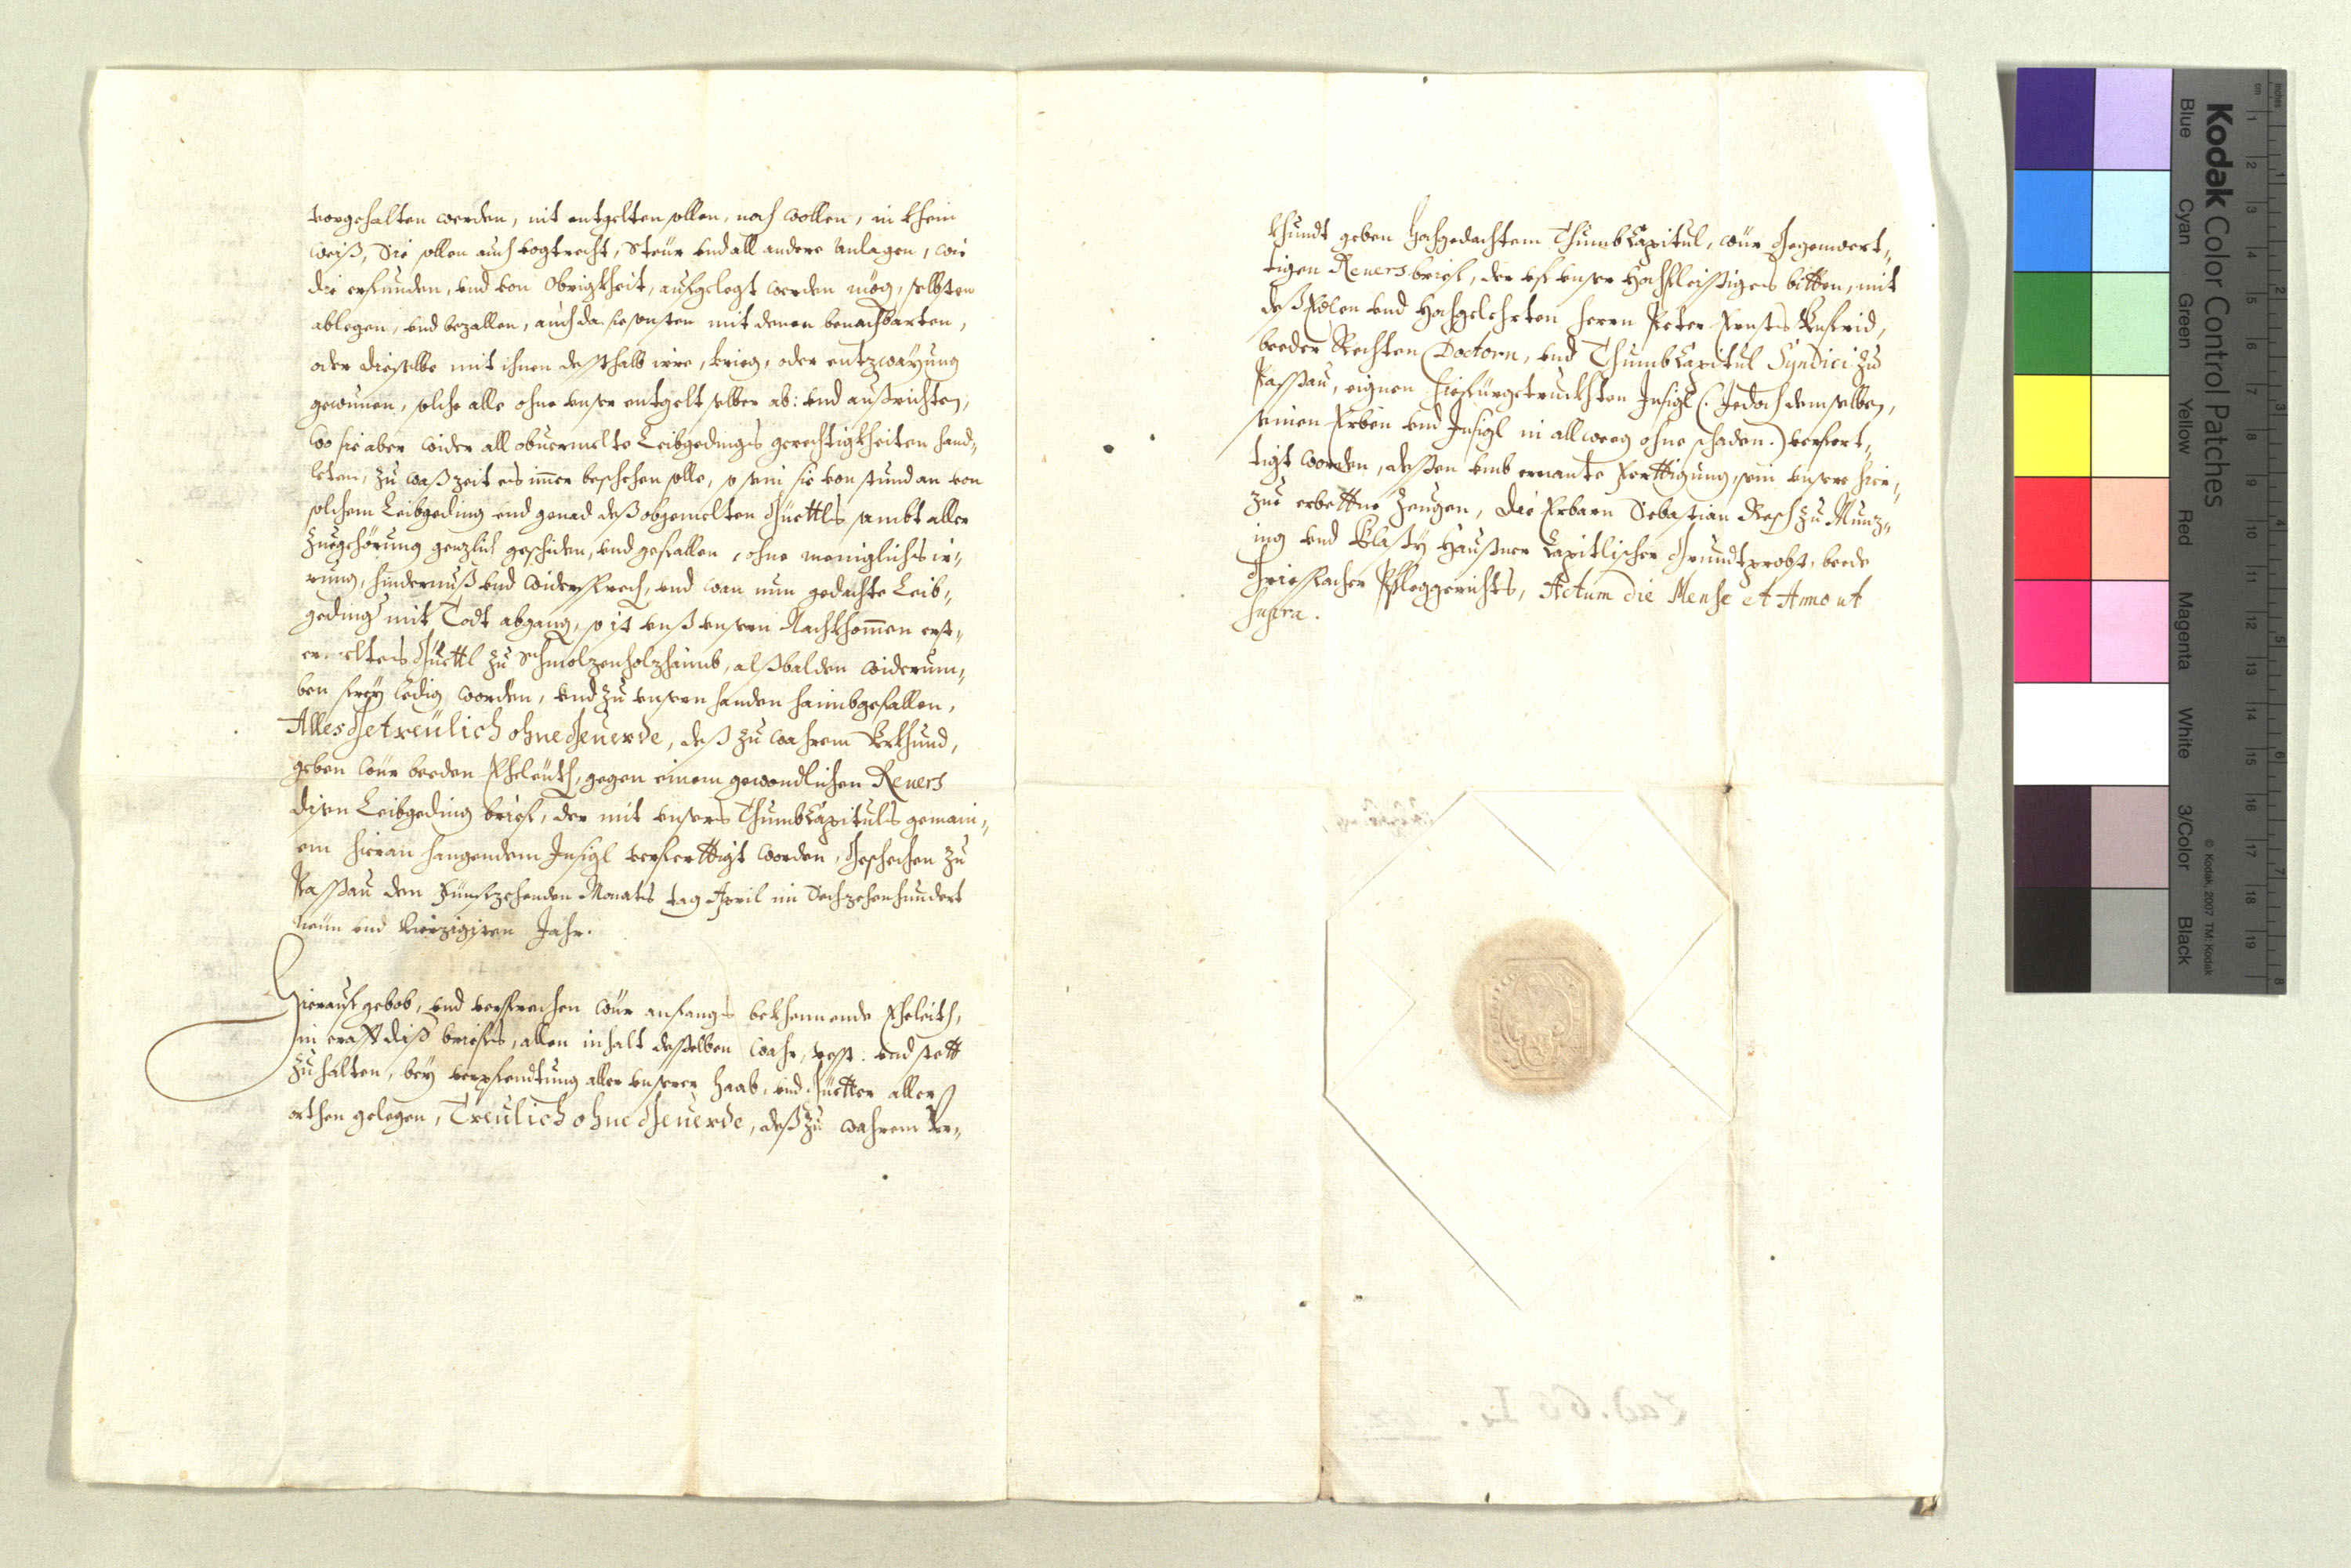 vorgehalten werden, nit entgelten sollen, noch wollen, in khein
weiß, Sie sollen auch vogtrecht, Steur und all andere Anlagen, wie
die erfunden, und von Obrigkheit, aufgelegt werden mög, selbsten
ablegen, und bezallen, auch da sie sonsten mit denen benachbarten,
oder dieselbe mit ihnen desthalb irre, krieg, oder entzwayung
gewunen, solche alle ohne unser entgelt selber ab: und außrichten,
Wo sie aber wider all obuermelte Leibgedings gerechtigkheiten hand„
leten, zu waß zeit es imer beschehen solle, so sein sie von stund an von
solchem Leibgeding und genad deß obgemelten Guettls sambt aller
Zuegehörung genzlich geschiden, und gefallen, ohne meniglichs ir„
rung, hindernuß und widersprech, und wan nun gedachte Leib„
geding mit Todt abgang, so ist unß unsern Nachkhomen erst„
ermeltes Guettl zu Schmolzenholzhaimb, alßbalden widerum„
ben frey ledig worden, und zu unsern handen haimbgefallen,
Alles Getreulich ohne Geuerde, deß zu wahrem Urkhund,
geben wür beeden Eheleuth, gegen einem gewondlichen Reuers
disen Leibgeding brief, der mit unsers ThumbCapituls gemain„
em hieran hangendem Insigl verferttigt worden, Geschechen zu
Passau den Fünfzehenden Monats tag April im Sechzehenhundert
neun und vierzigisten Jahr.
Hierauf gelob, und versprechen wür anfangs bekhennende Eheleith,
in crafft diß briefs, allen inhalt desselben wahr, vest, und stett
zu halten, bey verpfendtung aller unserer haab, und Guetter allerß
orthen gelegen, Treulich ohne Geuerde, deß zu wahrem Ur„
khundt geben Hochgedachtem ThumbCapitul, wür Gegenwert„
tigen Reuersbrief, der uf unser Hochfleissiges bitten, mit
deß Edlen und Hochgelehrten Herrn Peter Ernts
beeder Rechten Doctorn, und ThumbCapitul Syndici zu
Passau, eignen hiefürgetruckhten Insigl (: Jedoch demselben,
seinen Erben und Insigl in allweeg ohne schaden.) verfert„
tigt worden, dessen umb ernante Ferttigung, sein unsere hier„
zue erbettne Zeugen, die Erbarn Sebastian Resch zu Munz„
ing und Blasy Haußner Capitlischer Grundtprobst, beede
Griesbacher Pfleggerichts, Actum die Mense et Anno ut
supra.